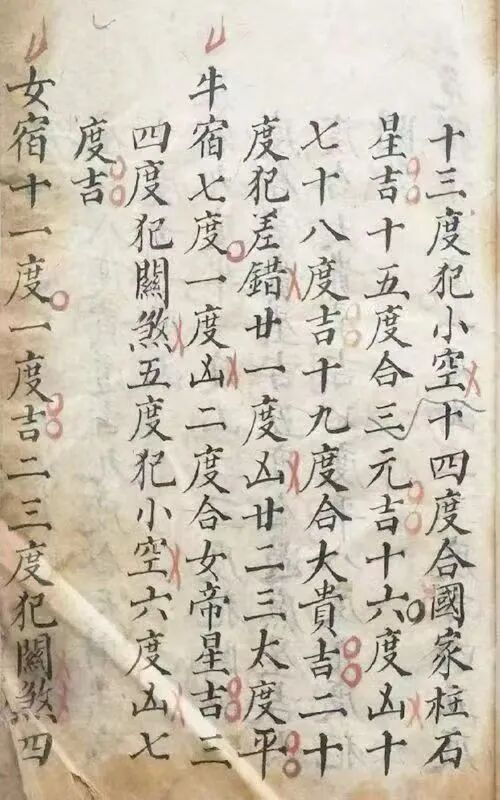 十三度犯小空十四度合國家柱石
星吉十五度合三元吉十六度凶十
七十八度吉十九度合大貴吉二十
度犯差錯廿一度凶廿二三太度平
牛宿七度一度凶二度合女帝星吉三
四度犯關煞五度犯小空六度凶七
度吉
女宿十一度一度吉二三度犯關煞四